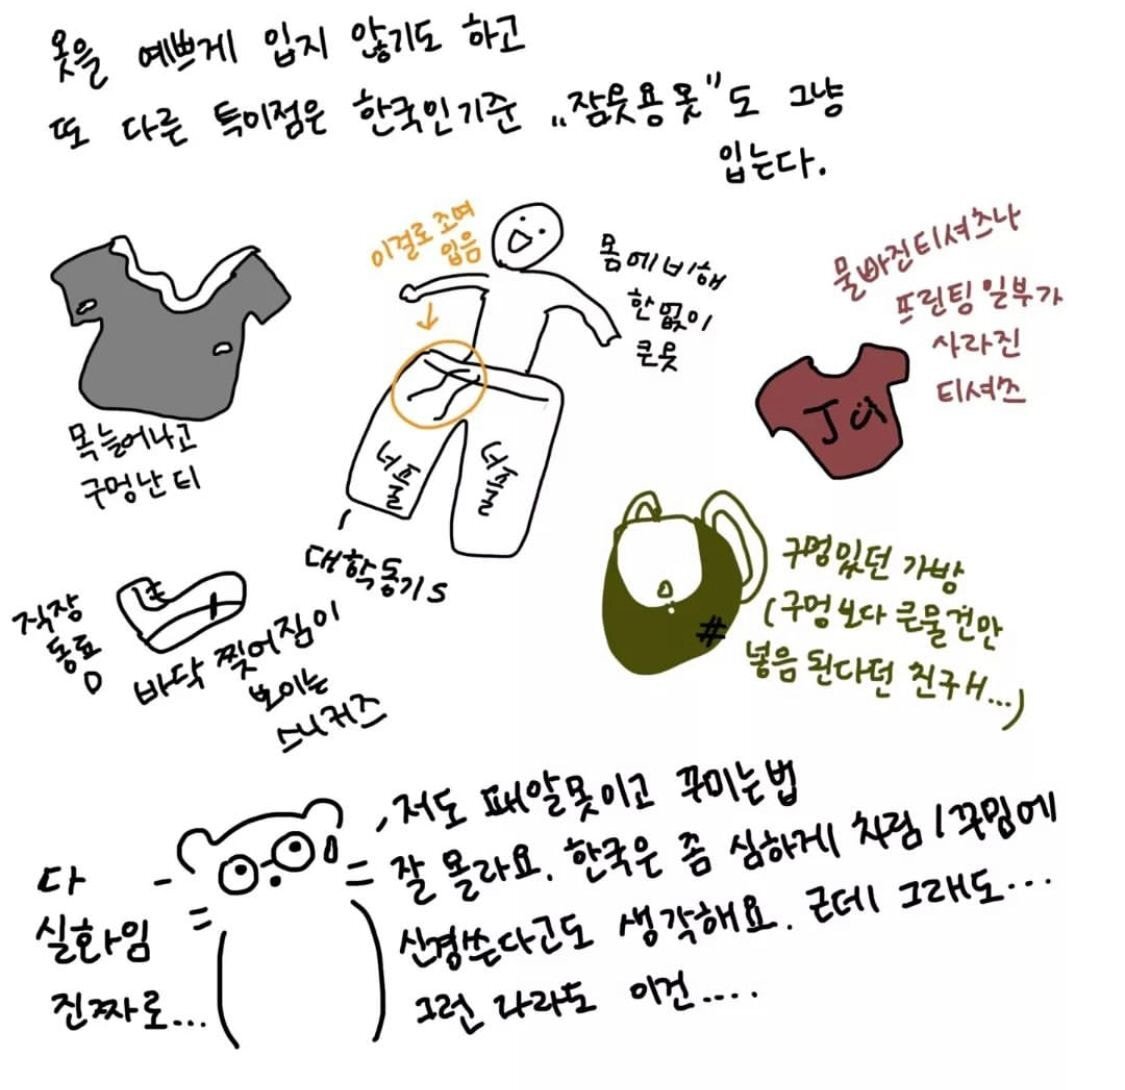 옷을 예쁘게 입지 않기도 하고
또 다른 특이점은 한국인기준 "잠옷용옷"도 그냥
입는다.
이걸로 조여
입음
몸에 비해
한없이
큰옷
물빠진티셔츠나
프린팅 일부가
사라진
티셔츠
목늘어나고
구멍난 티
너풀
너풀
대학동기s
Ja
직장
동료
바닥 찢어짐이
보이는
스니커즈
#
구멍있던 가방
(구멍보다 큰물건만
넣음 된다던 친구H...)
다
실화임
진짜로...
저도 패알못이고 꾸미는법
잘 몰라요. 한국은 좀 심하게 차림/꾸밈에
신경쓴다고도 생각해요. 근데 그래도...
그런 나라도 이건....